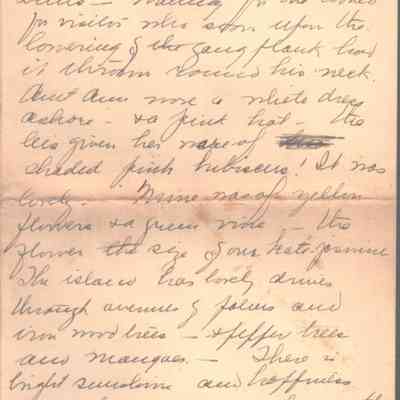 waiting for the
for visitor who soon upon the
lowering of the gang plank had
it thrown round his neck.
Aunt Ann wore a white dress
ashore - & a pink hat - the
leis given her were of
shaded pink hibiscus! It was
lovely - Mine was of yellow
flowers & a green vine, - the
flower the size of our Jasmine
The island has lovely drives
through avenues of palms and
iron wood trees - & pepper trees
and mangoes. - There is
bright sunshine and happiness
the